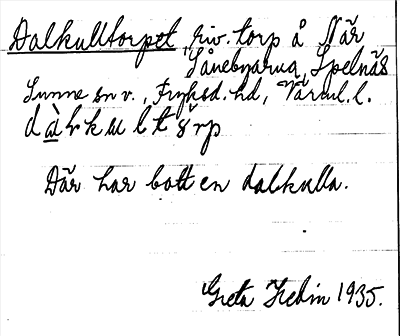 Dalkulltorpet, riv. torp å När
Sånebyarna, Spelnäs
Sunne sn v., Fryksd. hd, Värml. l.
dàlrkulltärp
Där har bott en dalkulla.
Greta Hedin 1935.